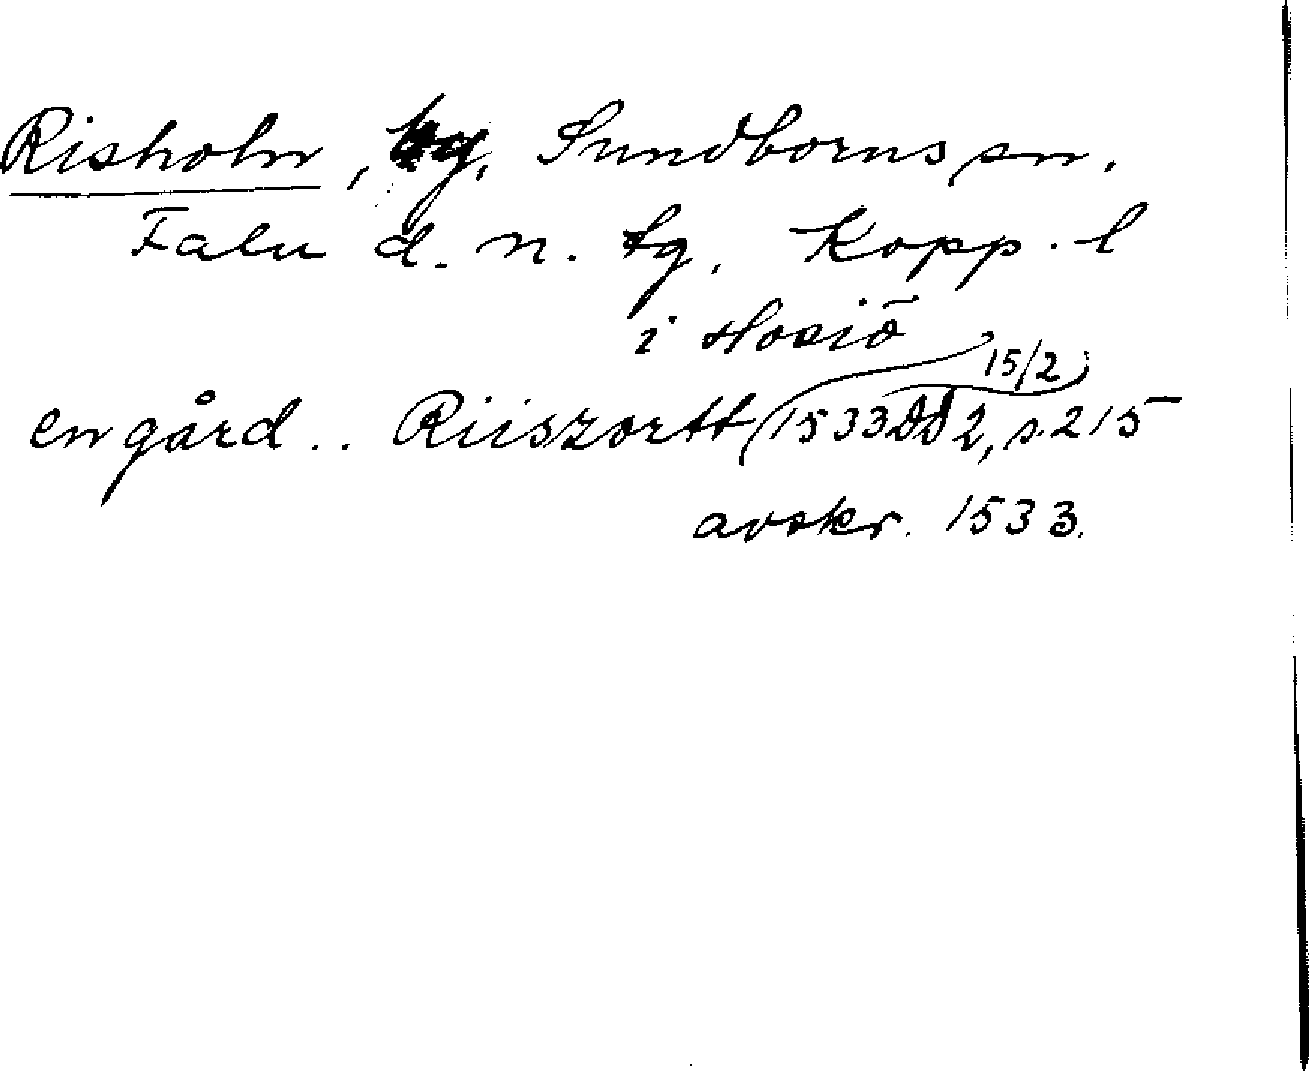 Risholm, by, Sundborns sn.
Falu d. n. tg, Kopp. l
i Hosjö
en gård .. Riiszortt (1533 15/2) DD 2, s. 215
avskr. 1533.